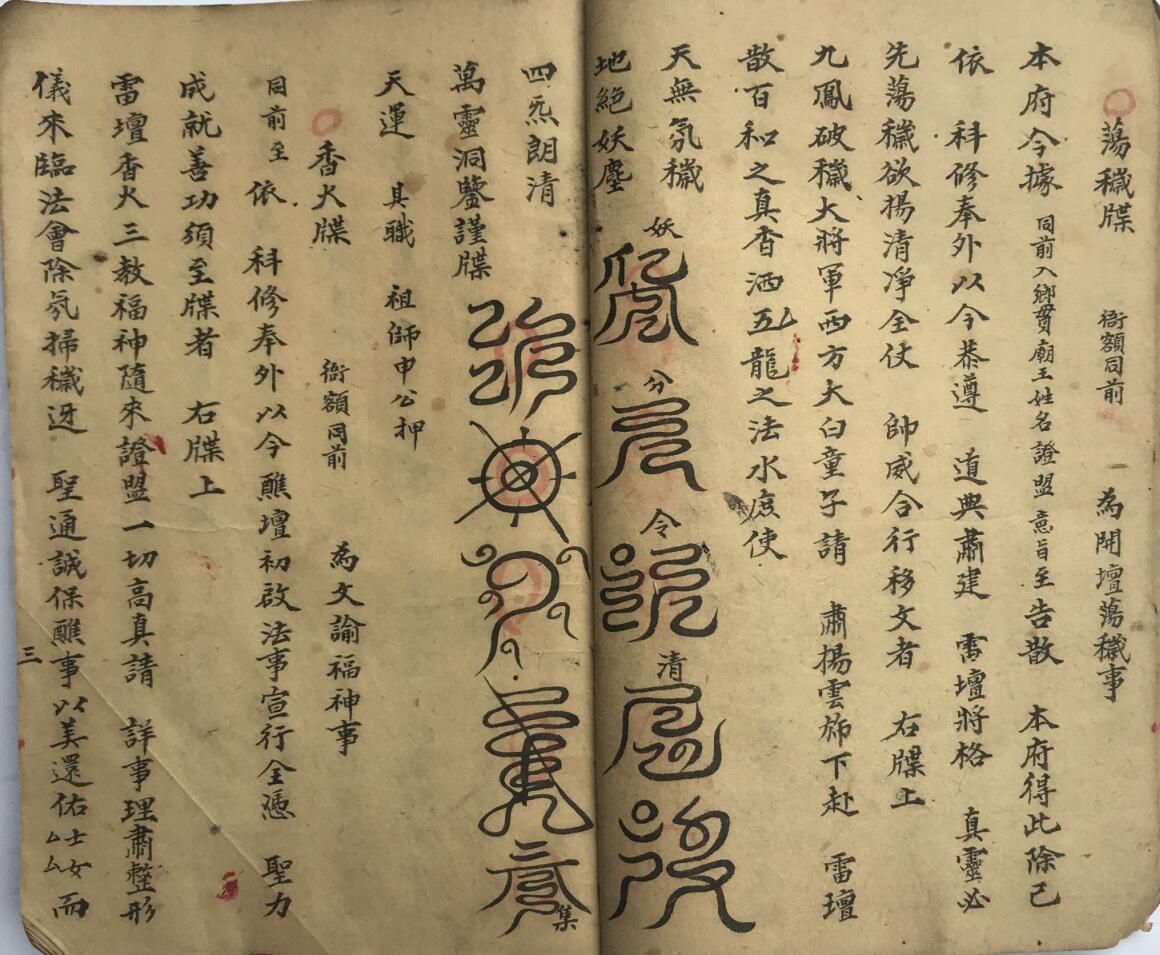 蕩穢牒 衙額同前 為開壇蕩穢事
本府今據 同前入鄉貫廟王姓名證盟意旨至告散 本府得此除已
依 科修奉外以今恭遵 道典肅建 雷壇將格 真靈必
先蕩穢欲揚清凈全仗 帥威合行移文者 右牒上
九鳳破穢大將軍西方大白童子請 肅揚雲斾下赴 雷壇
散百和之真香洒五龍之法水庶使
天無氛穢
妖 分 令 清
地絕妖塵
四炁朗清
集
萬靈洞鑒謹牒
天運 具職 祖師申公押
香火牒 衙額同前 為文諭福神事
同前至 依 科修奉外以今醮壇初啟法事宣行全憑 聖力
成就善功須至牒者 右牒上
雷壇香火三教福神隨來證盟一切高真請 詳事理肅整形
儀來臨法會除氛掃穢迓 聖通誠保醮事以美還佑士女厶厶而
三